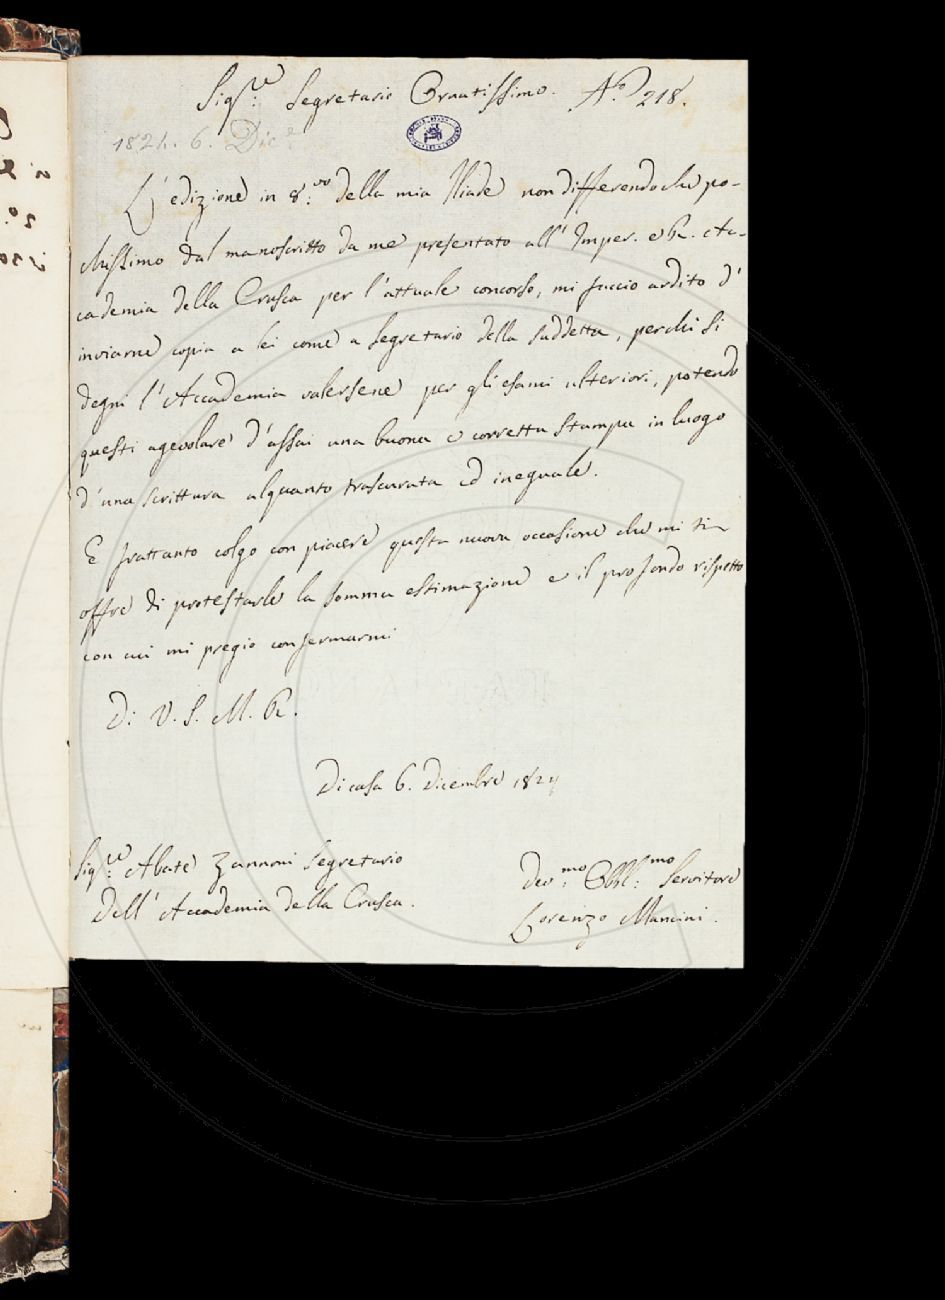 Sig.re Segretario Ornatissimo. N.o 218.
1824. 6. Dic.e
L'edizione in 8.vo della mia Iliade non differendo che po-
chissimo dal manoscritto da me presentato all' Imper. e R. Ac-
cademia della Crusca per l'attuale concorso, mi faccio ardito d'
inviarne copia a lei come a Segretario della suddetta, perchè si
degni l'Accademia valersene per gli esami ulteriori, potendo
questi agevolare d'assai una buona e corretta stampa in luogo
d'una scrittura alquanto trascurata ed ineguale.
E frattanto colgo con piacere questa nuova occasione che mi si
offre di protestarle la somma estimazione e il profondo rispetto
con cui mi pregio confermarmi
Di V. S. M. R.
Di casa 6. Dicembre 1824
Sig.re Abate Zannoni Segretario
Dell' Accademia della Crusca.
Dev.mo Obbl.mo Servitore
Lorenzo Mancini.